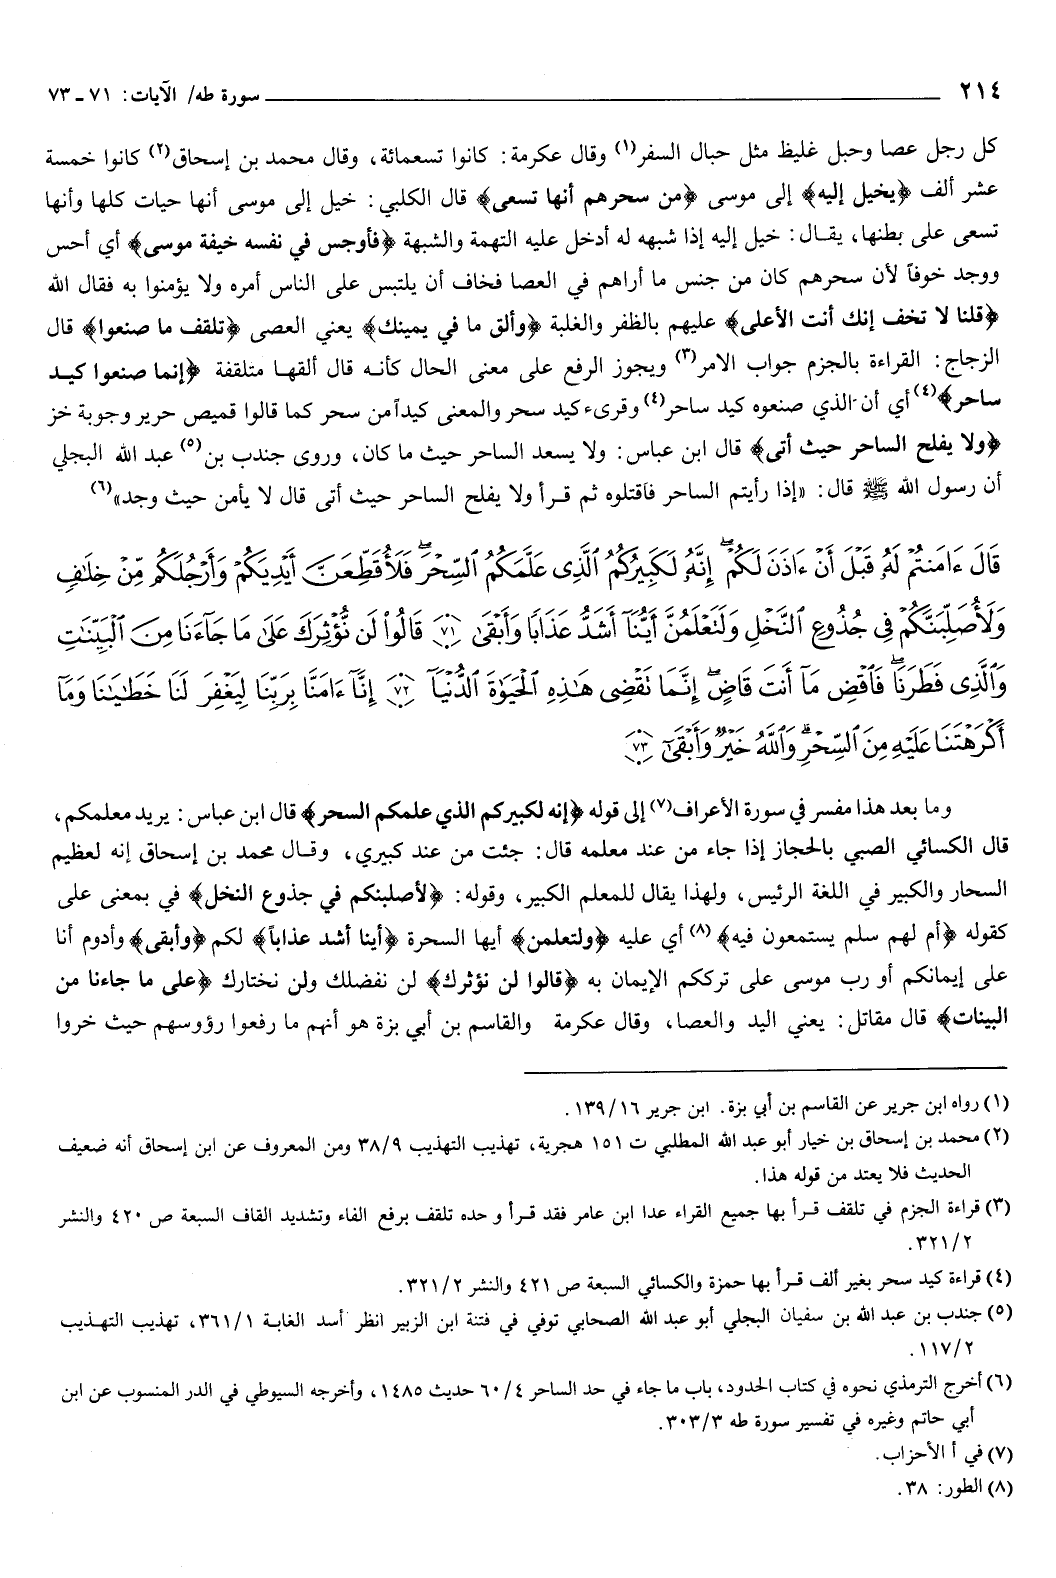 ٢١٤ سورة طه/ الآيات: ٧١ ـ ٧٣
كل رجل عصا وحبل غليظ مثل حبال السفر(١) وقال عكرمة: كانوا تسعمائة، وقال محمد بن إسحاق(٢) كانوا خمسة
عشر ألف ﴿يخيل إليه﴾ إلى موسى ﴿من سحرهم أنها تسعى﴾ قال الكلبي: خيل إلى موسى أنها حيات كلها وأنها
تسعى على بطنها، يقال: خيل إليه إذا شبهه له أدخل عليه التهمة والشبهة ﴿فأوجس في نفسه خيفة موسى﴾ أي أحس
ووجد خوفاً لأن سحرهم كان من جنس ما أراهم في العصا فخاف أن يلتبس على الناس أمره ولا يؤمنوا به فقال الله
﴿قلنا لا تخف إنك أنت الأعلى﴾ عليهم بالظفر والغلبة ﴿وألق ما في يمينك﴾ يعني العصى ﴿تلقف ما صنعوا﴾ قال
الزجاج: القراءة بالجزم جواب الامر(٣) ويجوز الرفع على معنى الحال كأنه قال ألقها متلقفة ﴿إنما صنعوا كيد
ساحر﴾(٤) أي أن الذي صنعوه كيد ساحر(٤) وقرىء كيد سحر والمعنى كيداً من سحر كما قالوا قميص حرير وجوبة خز
﴿ولا يفلح الساحر حيث أتى﴾ قال ابن عباس: ولا يسعد الساحر حيث ما كان، وروى جندب بن(٥) عبد الله البجلي
أن رسول الله ﷺ قال: «إذا رأيتم الساحر فاقتلوه ثم قرأ ولا يفلح الساحر حيث أتى قال لا يأمن حيث وجد»(٦)
قَالَ ءَامَنتُمْ لَهُۥ قَبْلَ أَنْ ءَاذَنَ لَكُمْ ۖ إِنَّهُۥ لَكَبِيرُكُمُ ٱلَّذِى عَلَّمَكُمُ ٱلسِّحْرَ ۖ فَلَأُقَطِّعَنَّ أَيْدِيَكُمْ وَأَرْجُلَكُم مِّنْ خِلَٰفٍ
وَلَأُصَلِّبَنَّكُمْ فِى جُذُوعِ ٱلنَّخْلِ وَلَتَعْلَمُنَّ أَيُّنَآ أَشَدُّ عَذَابًا وَأَبْقَىٰ ﴿٧١﴾ قَالُوا۟ لَن نُّؤْثِرَكَ عَلَىٰ مَا جَآءَنَا مِنَ ٱلْبَيِّنَٰتِ
وَٱلَّذِى فَطَرَنَا ۖ فَٱقْضِ مَآ أَنتَ قَاضٍ ۖ إِنَّمَا تَقْضِى هَٰذِهِ ٱلْحَيَوٰةَ ٱلدُّنْيَآ ﴿٧٢﴾ إِنَّآ ءَامَنَّا بِرَبِّنَا لِيَغْفِرَ لَنَا خَطَٰيَٰنَا وَمَآ
أَكْرَهْتَنَا عَلَيْهِ مِنَ ٱلسِّحْرِ ۗ وَٱللَّهُ خَيْرٌ وَأَبْقَىٰٓ ﴿٧٣﴾
وما بعد هذا مفسر في سورة الأعراف(٧) إلى قوله ﴿إنه لكبيركم الذي علمكم السحر﴾ قال ابن عباس: يريد معلمكم،
قال الكسائي الصبي بالحجاز إذا جاء من عند معلمه قال: جئت من عند كبيري، وقال محمد بن إسحاق إنه لعظيم
السحار والكبير في اللغة الرئيس، ولهذا يقال للمعلم الكبير، وقوله: ﴿لأصلبنكم في جذوع النخل﴾ في بمعنى على
كقوله ﴿أم لهم سلم يستمعون فيه﴾(٨) أي عليه ﴿ولتعلمن﴾ أيها السحرة ﴿أينا أشد عذاباً﴾ لكم ﴿وأبقى﴾ وأدوم أنا
على إيمانكم أو رب موسى على ترككم الإيمان به ﴿قالوا لن نؤثرك﴾ لن نفضلك ولن نختارك ﴿على ما جاءنا من
البينات﴾ قال مقاتل: يعني اليد والعصا، وقال عكرمة والقاسم بن أبي بزة هو أنهم ما رفعوا رؤوسهم حيث خروا
(١) رواه ابن جرير عن القاسم بن أبي بزة. ابن جرير ١٣٩/١٦.
(٢) محمد بن إسحاق بن خيار أبو عبد الله المطلبي ت ١٥١ هجرية، تهذيب التهذيب ٣٨/٩ ومن المعروف عن ابن إسحاق أنه ضعيف
الحديث فلا يعتد من قوله هذا.
(٣) قراءة الجزم في تلقف قرأ بها جميع القراء عدا ابن عامر فقد قرأ وحده تلقف برفع الفاء وتشديد القاف السبعة ص ٤٢٠ والنشر
٣٢١/٢.
(٤) قراءة كيد سحر بغير ألف قرأ بها حمزة والكسائي السبعة ص ٤٢١ والنشر ٣٢١/٢.
(٥) جندب بن عبد الله بن سفيان البجلي أبو عبد الله الصحابي توفي في فتنة ابن الزبير انظر أسد الغابة ٣٦١/١، تهذيب التهذيب
١١٧/٢.
(٦) أخرج الترمذي نحوه في كتاب الحدود، باب ما جاء في حد الساحر ٦٠/٤ حديث ١٤٨٥، وأخرجه السيوطي في الدر المنسوب عن ابن
أبي حاتم وغيره في تفسير سورة طه ٣٠٣/٣.
(٧) في أ الأحزاب.
(٨) الطور: ٣٨.